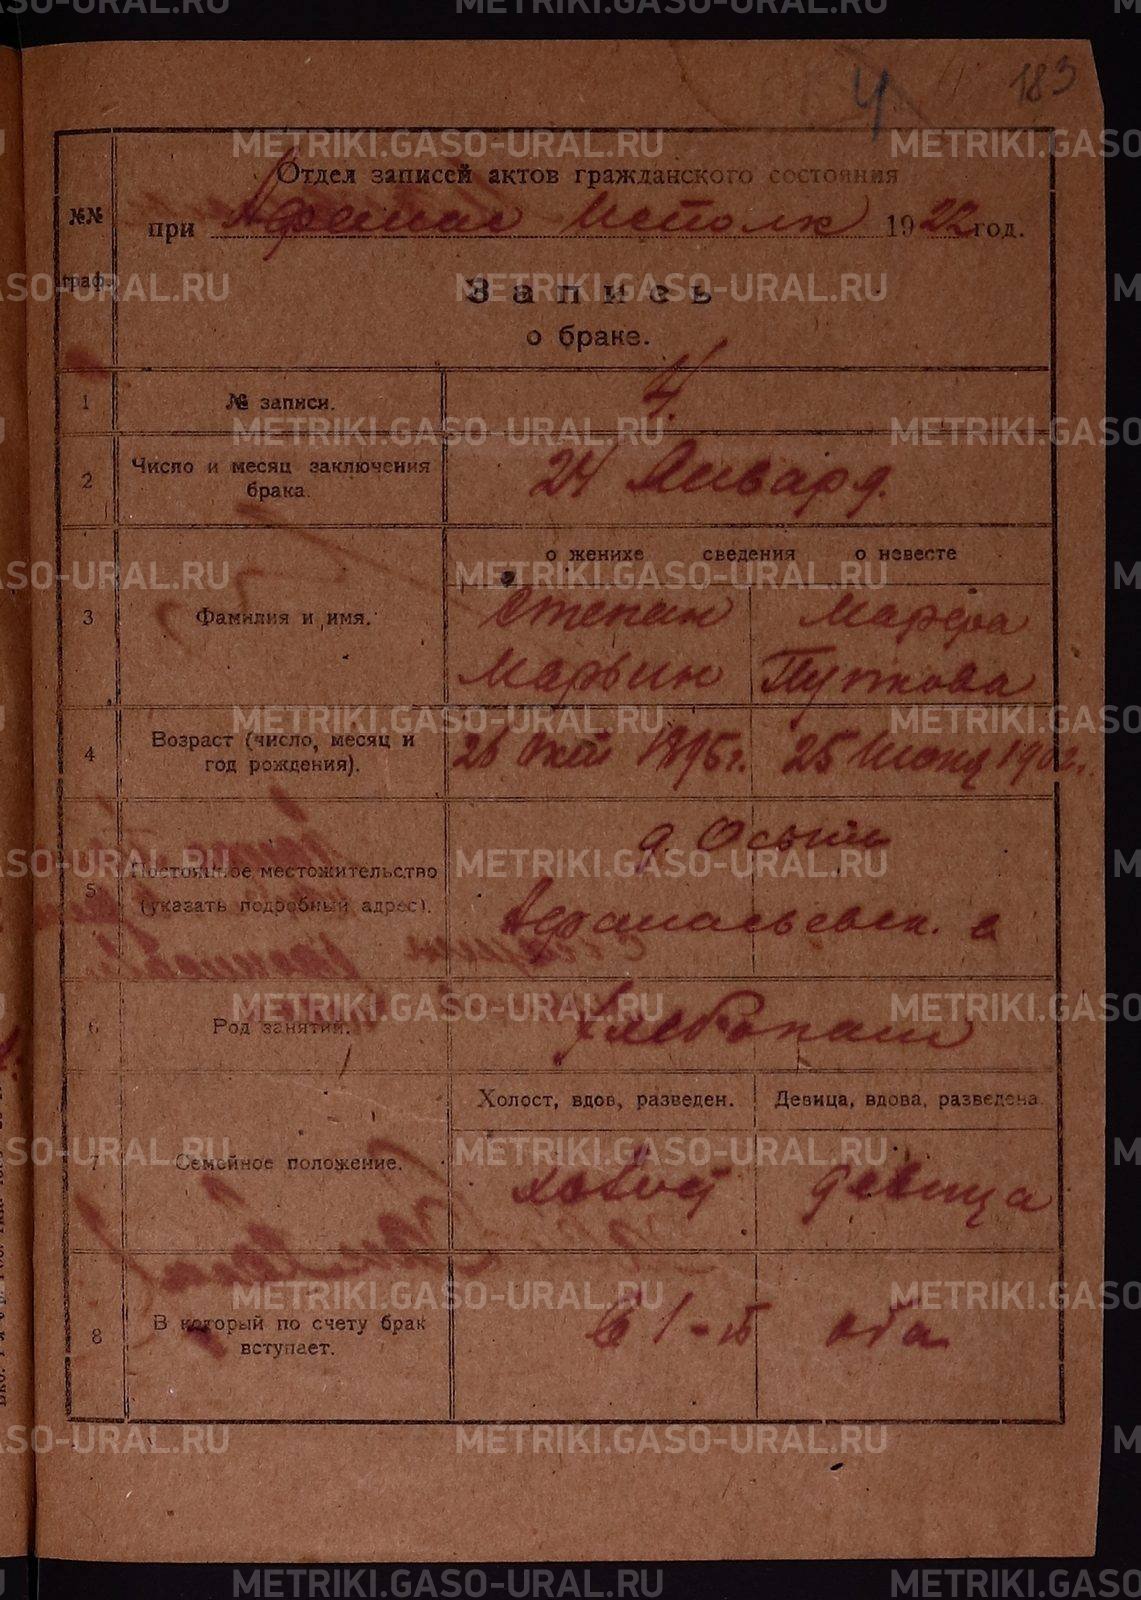 183
4
Отдел записей актов гражданского состояния
при Афанас Исполк 1922 год.
№№ граф.
Запись
о браке.
1 № записи. 4.
2 Число и месяц заключения брака. 24 Января.
о женихе сведения о невесте
3 Фамилия и имя. Степан Марфа
Марьин Пупкова
4 Возраст (число, месяц и год рождения). 26 1895г. 25 Июня 1902г.
5 Постоянное местожительство (указать подробный адрес). д. Осы
Афанасьевск. с
6 Род занятий. Хлебопаш
Холост, вдов, разведен. Девица, вдова, разведена.
7 Семейное положение. холост девица
8 В который по счету брак вступает. в 1-й оба
METRIKI.GASO-URAL.RU